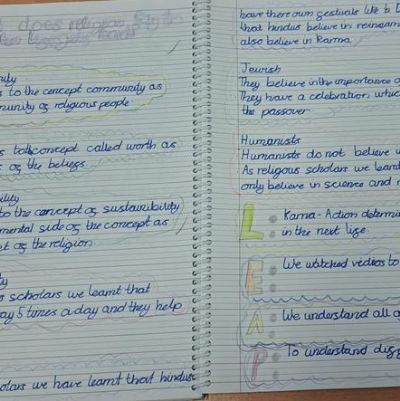 does religious
ity
s to the concept community as
munity of religious people
concept called worth as
s of the beliefs
lity
to the concept of sustainibility
mental side of the concept as
ct of the religion
ty
s scholars we learnt that
ay 5 times a day and they help
olars we have learnt that hindus
have there own
that hindus believe in reincarn
also believe in Karma.
Jewish
They believe in the importance o
They have a celebration whic
the passover
Humanists
Humanists do not believe
As religous scholars we learnt
only believe in science and
L: Karma - Action determin
in the next life.
E: We watched videos to
A: We understand all
P: To understand